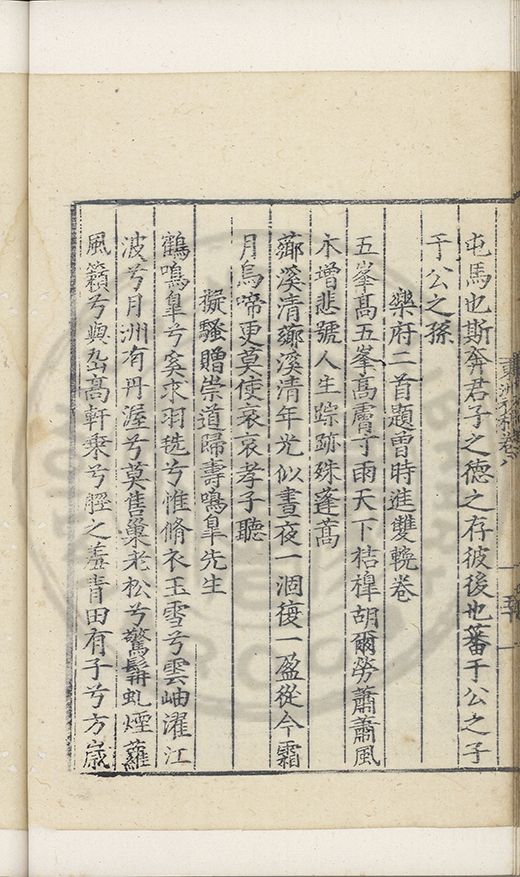 屯馬也斯奔君子之德之存彼後也蕃于公之子
于公之孫
樂府二首題曾時進雙輓卷
五峯髙五峯髙膚寸雨天下桔槹胡爾勞蕭蕭風
木增悲號人生踪跡殊蓬蒿
薌溪清薌溪清年光似晝夜一涸復一盈從今霜
月烏啼更莫使哀哀孝子聽
擬騷贈崇道歸壽鳴臯先生
鶴鳴臯兮奚求羽毨兮惟脩衣玉雪兮雲岫濯江
波兮月洲有丹渥兮莫售巢老松兮驚鬅虬煙蘿
風籟兮與
髙軒乘兮脛之羞青田有子兮方歲